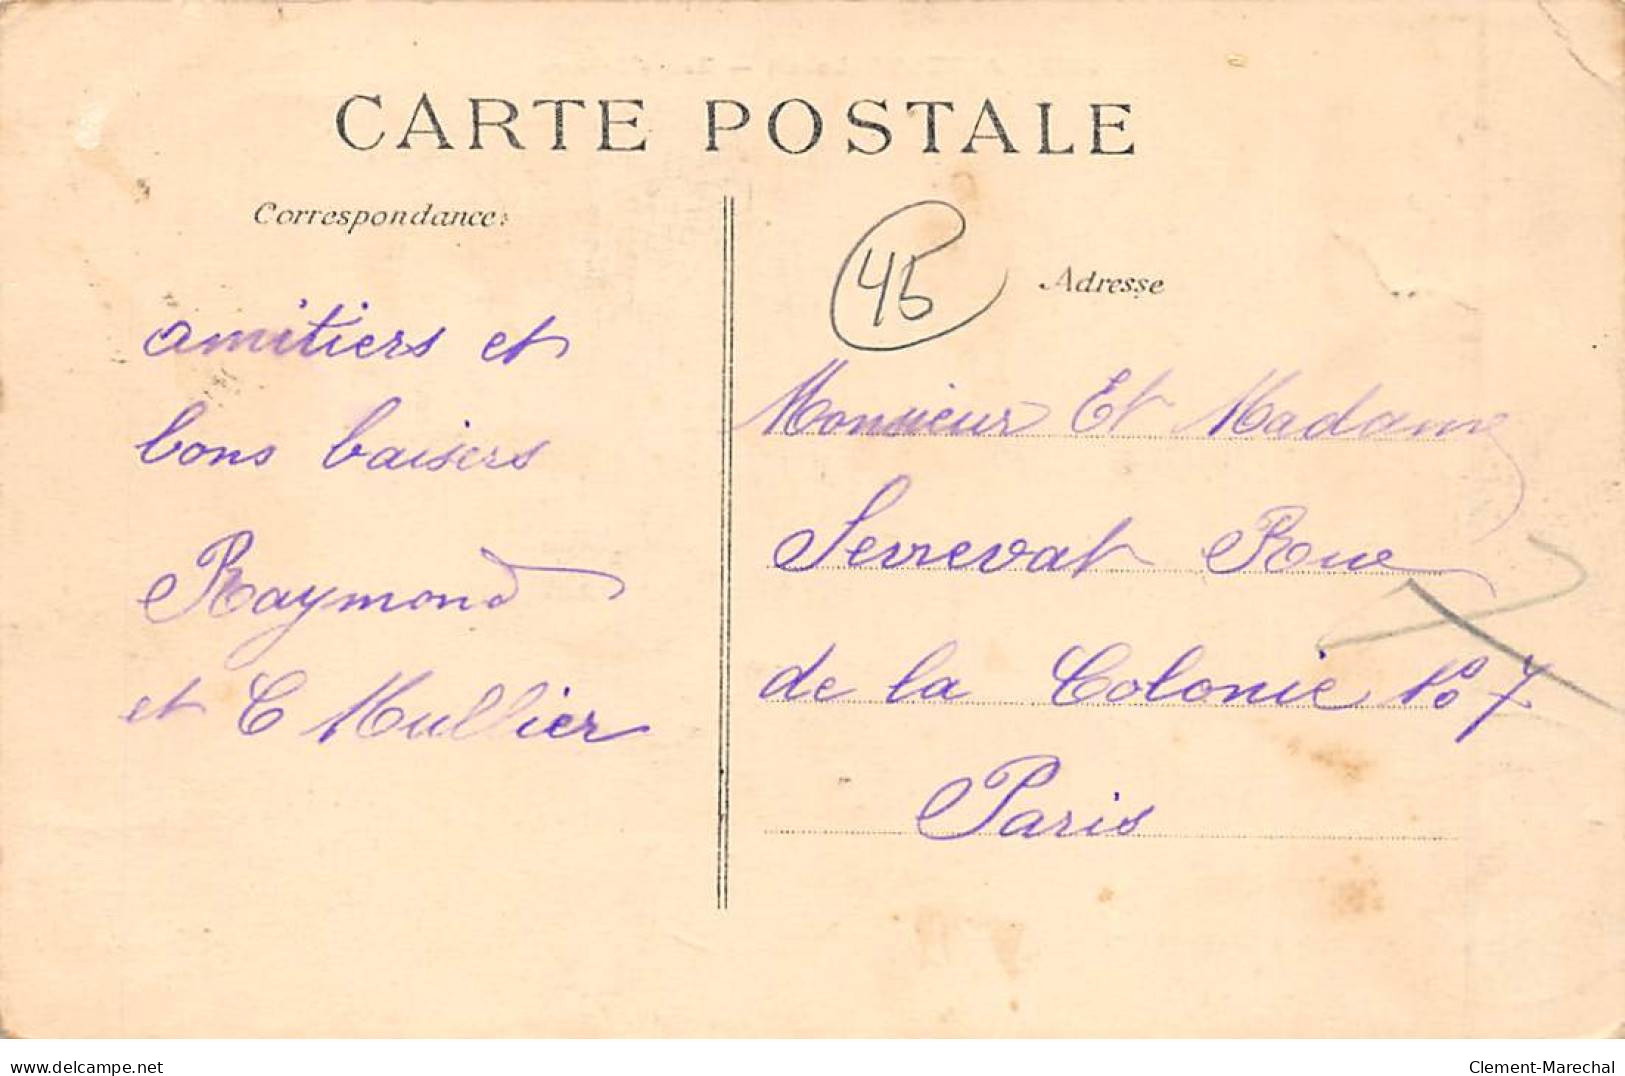 CARTE POSTALE
Correspondance:
amitiers et
bons baisers
Raymond
et C Mullier
45
Adresse
Monsieur Et Madame
Serrevat Rue
de la Colonie No 7
Paris
www.delcampe.net
Clement-Marechal